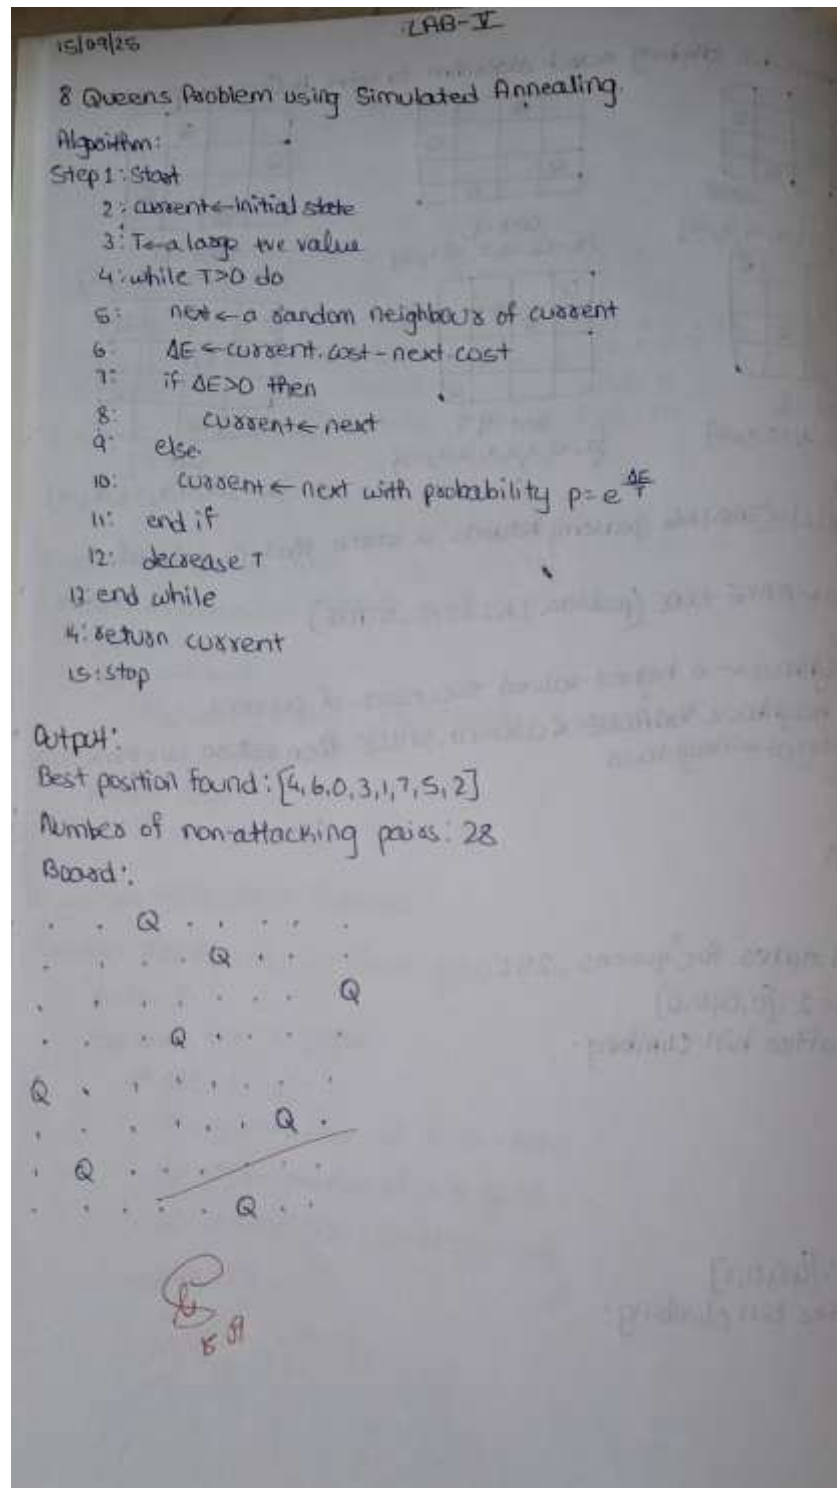 15/09/25
LAB-V
8 Queens Problem using Simulated Annealing.
Algorithm:
Step 1: Start
2: current←initial state
3: T←a large +ve value
4: while T>0 do
5: next←a random neighbour of current
6: ΔE←current.cost-next.cost
7: if ΔE>0 then
8: current←next
9: else
10: current←next with probability p=e^ΔE/T
11: end if
12: decrease T
13: end while
14: return current
15: stop
Output:
Best position found: [4,6,0,3,1,7,5,2]
Number of non-attacking pairs: 28
Board:
. . Q . . . . .
. . . . Q . . .
. . . . . . . Q
. . . Q . . . .
Q . . . . . . .
. . . . . . Q .
. Q . . . . . .
. . . . . Q . .